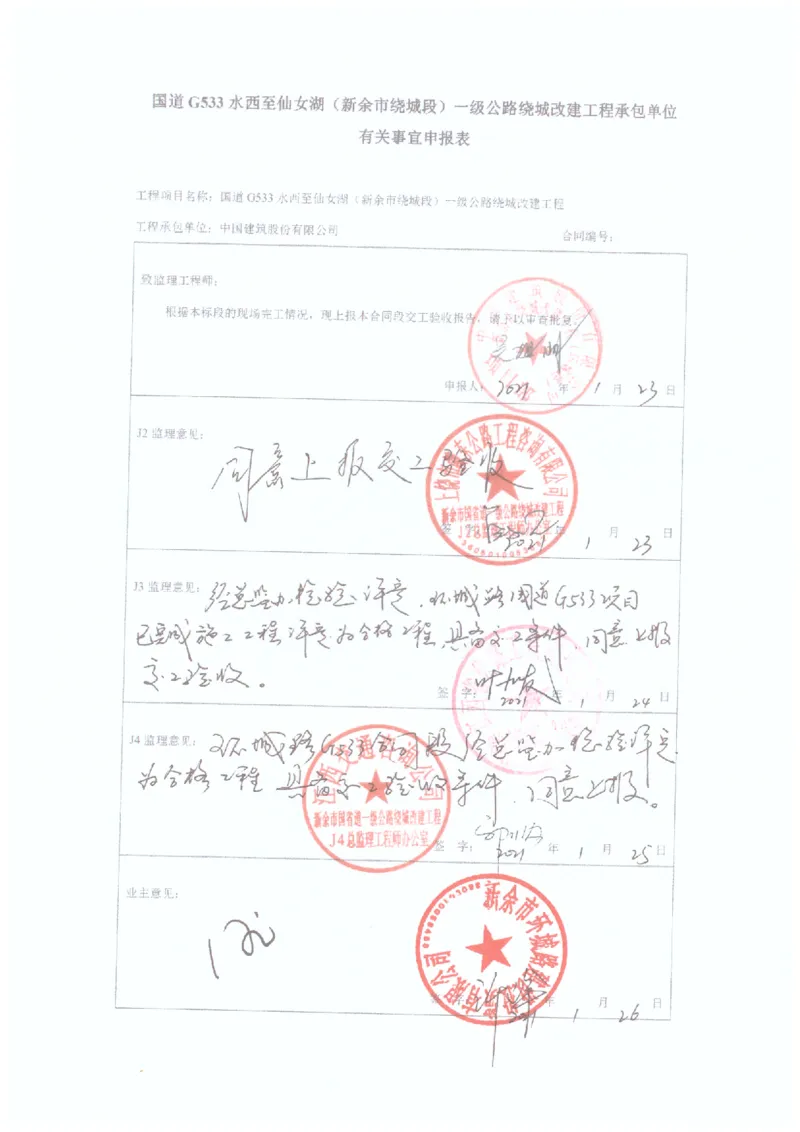 国道 G533 水西至仙女湖（新余市绕城段）一级公路绕城改建工程承包单位
有关事宜申报表
工程项目名称：国道 G533 水西至仙女湖（新余市绕城段）一级公路绕城改建工程
工程承包单位：中国建筑股份有限公司
合同编号：
致监理工程师：
根据本标段的现场完工情况，现上报本合同段交工验收报告，请予以审查批复。
申报人： 2021 年 1 月 23 日
J2 监理意见：
同意上报交工验收
公路工程咨询有限公司
新余市国省道一级公路绕城改建工程
J2总监理工程师办公室
签 字： 2021 年 1 月 23 日
J3 监理意见：经总监办检验评定，环城路国道G533项目
已完成施工工程评定为合格工程，具备交工条件，同意上报
交工验收。
签 字： 2021 年 1 月 24 日
J4 监理意见：环城路G533合同段经总监办检验评定
为合格工程，具备交工验收条件，同意上报。
江西交通咨询公司
新余市国省道一级公路绕城改建工程
J4总监理工程师办公室
签 字： 2021 年 1 月 25 日
业主意见：
同意
新余市环城路建设有限公司
年 1 月 26 日